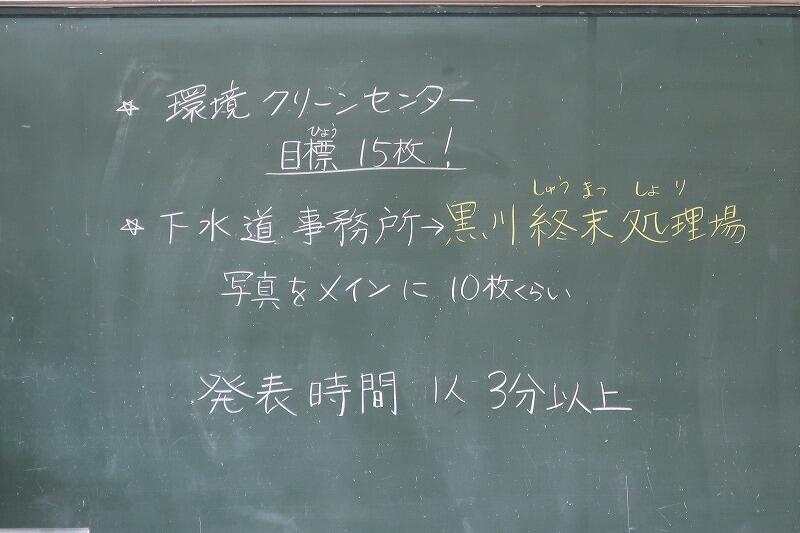 ☆ 環境クリーンセンター
ひょう
目標 15枚!
しゅう まつ しょり
☆ 下水道事務所→黒川終末処理場
写真をメインに 10枚くらい
発表時間 1人 3分以上